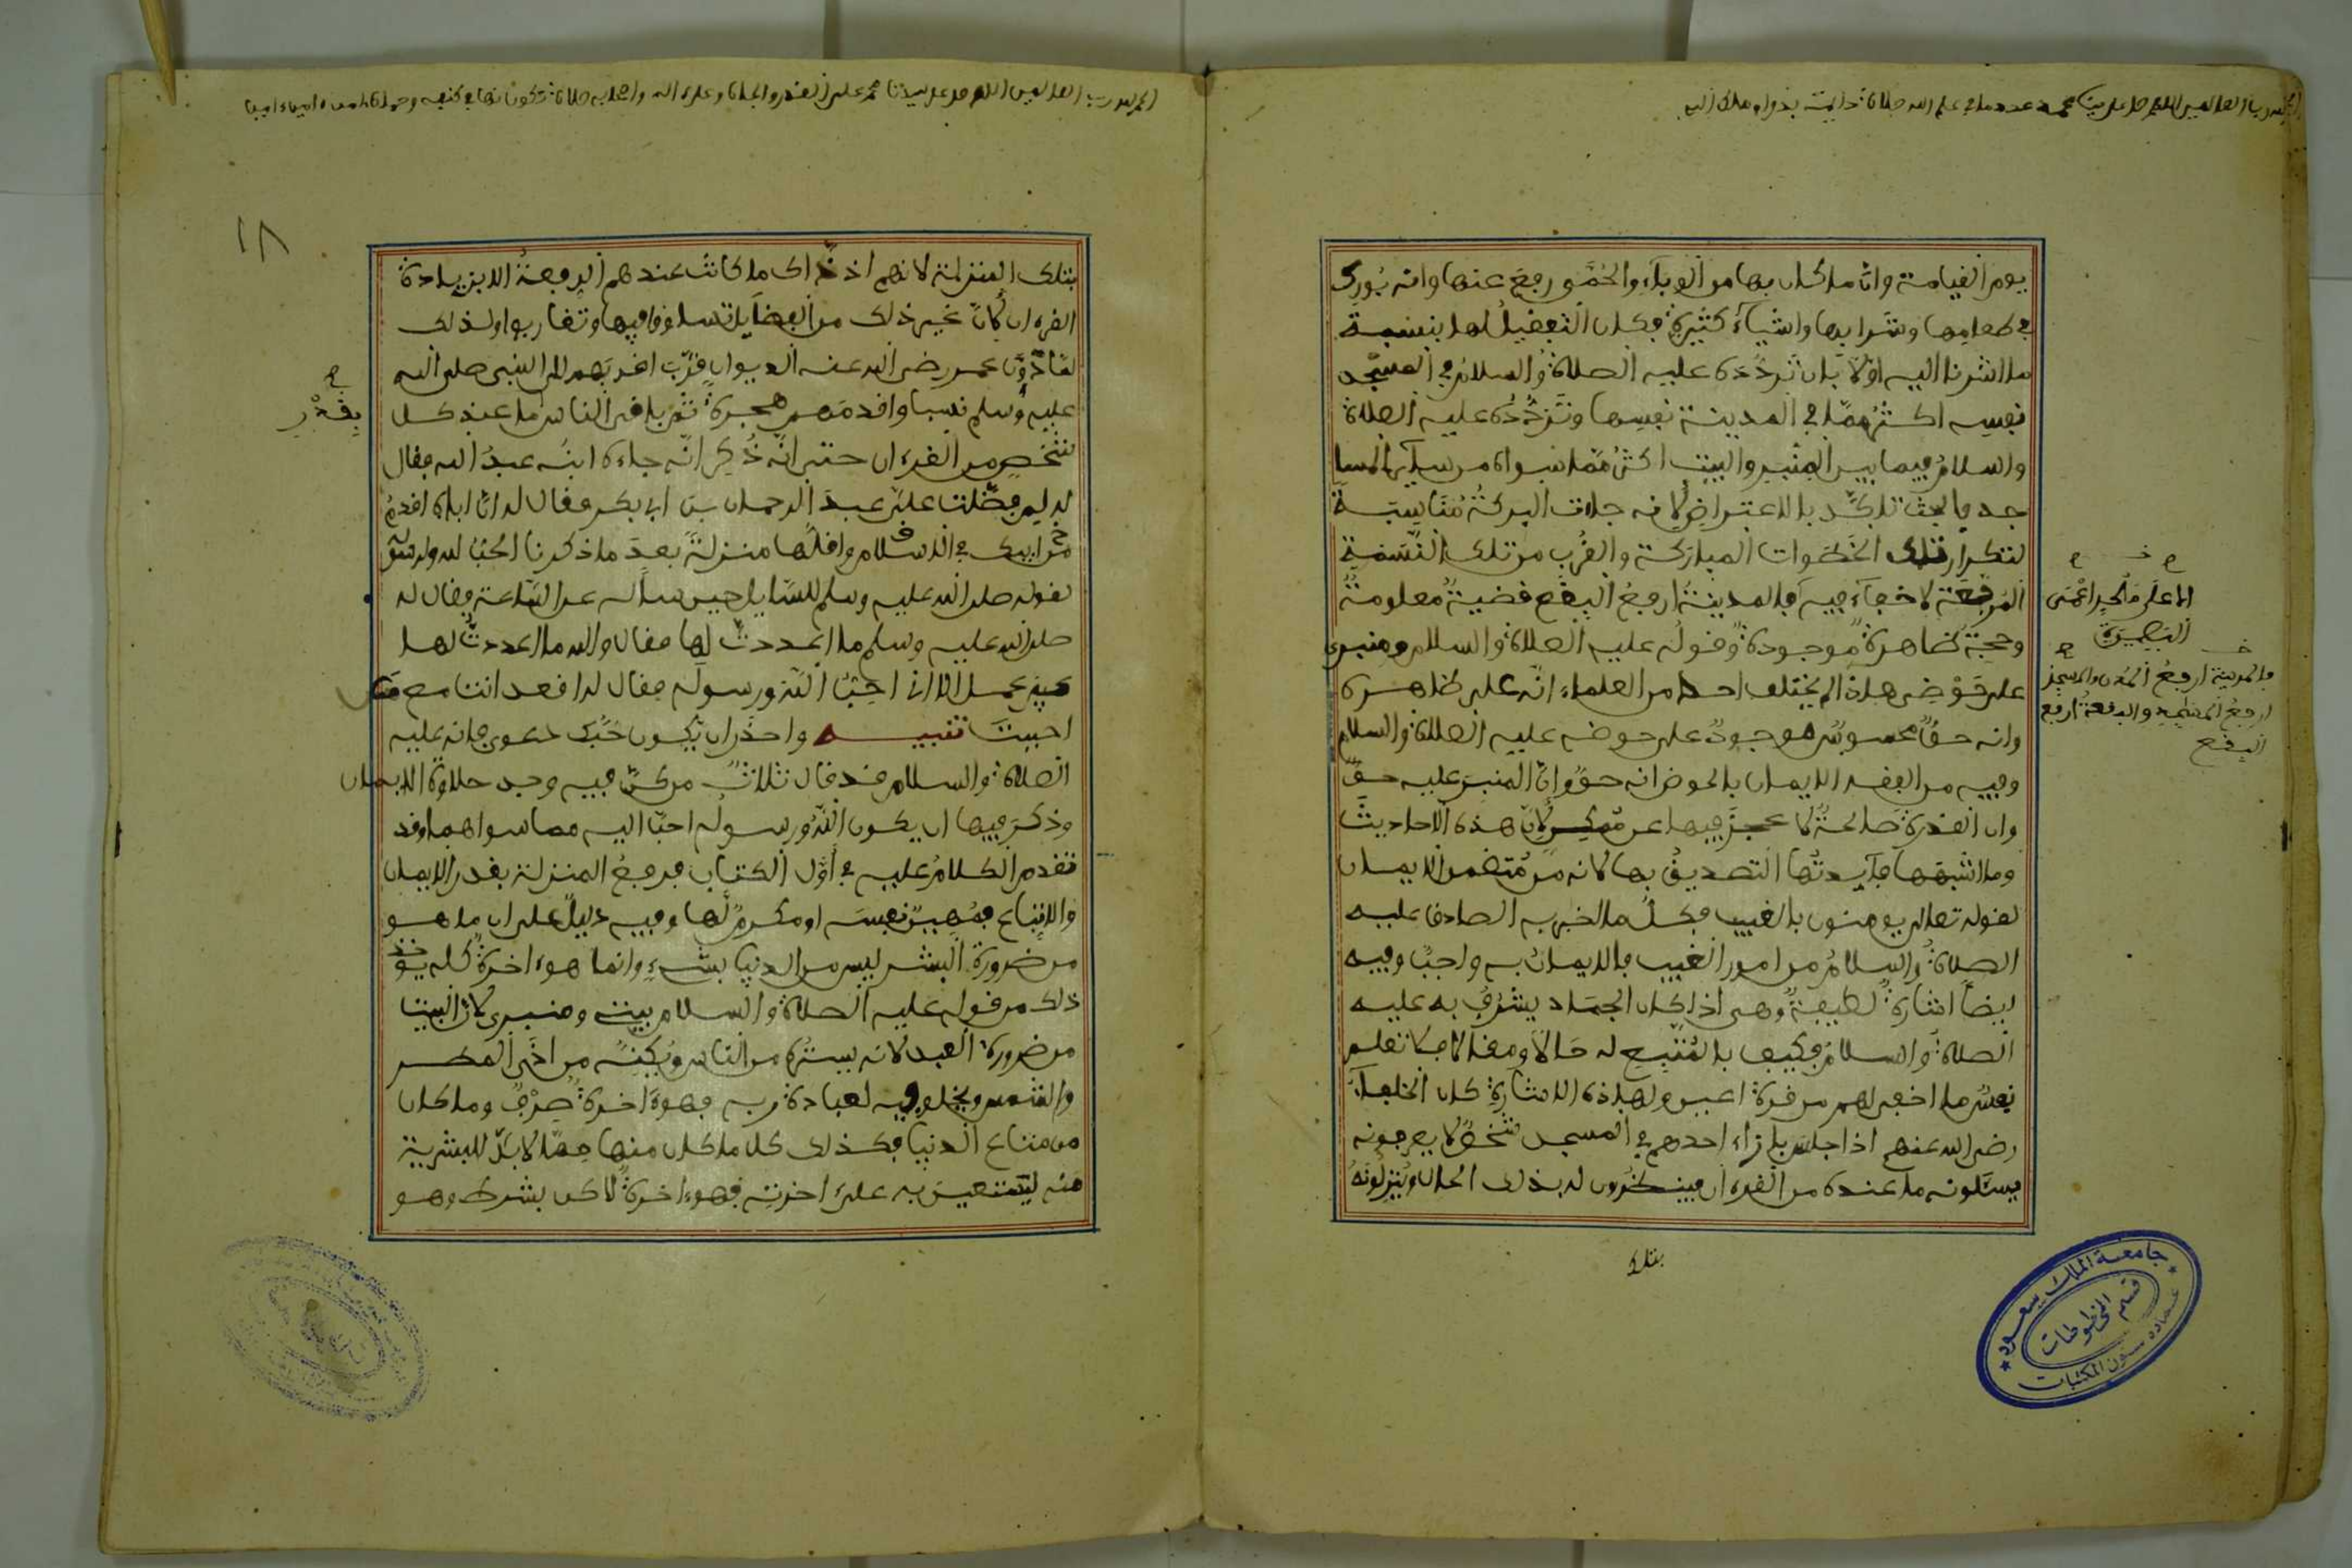 يوم القيامة وان ما كان بها من الوباء والحمى رفع عنها وانه بورك
في طعامها وشرابها واشياء كثيرة فكان التفضيل لها بنسبة
ما اشرنا اليه اولا بان تردده عليه الصلاة والسلام في المسجد
نفسه اكثر مما في المدينة نفسها وتردده عليه الصلاة
والسلام فيما بين المنبر والبيت اكثر مما سواه من سائر المسا
جد فالبحث تاكد بالاعتراض لانه جاءت البركة مناسبة
لتكرار تلك الخطوات المباركة والقرب من تلك النسمة
المرفعة لا خفاء فيه فالمدينة ارفع البقع قضية معلومة
وحجة ظاهرة موجودة وقوله عليه الصلاة والسلام ومنبرى
على حوضى هاذا لم يختلف احد من العلماء انه على ظاهره
وانه حق محسوس موجود على حوضه عليه الصلاة والسلام
وفيه من الفقه الايمان بالحوض انه حق وان المنبر عليه حق
وان القدرة صالحة لا عجز فيها عن ممكن لان هذه الاحاديث
وما اشبهها فايدتها التصديق بها لانه من متضمن الايمان
لقوله تعالى يومنون بالغيب فكل ما اخبر به الصادق عليه
الصلاة والسلام من امور الغيب فالايمان به واجب وفيه
ايضا اشارة لطيفة وهى اذا كان الجماد يشرف به عليه
الصلاة والسلام فكيف بالمتبع له حالا ومقالا فلا تعلم
نفس ما اخفى لهم من قرة اعين ولهاذه الاشارة كان الخلفاء
رضى الله عنهم اذا جلس بازاء احدهم في المسجد شخص لا يعرفونه
يسئلونه ما عنده من القرءان فينظرون له بذلك الحال وينزلونه
الا على مالحد اعمى
البصيرة
فالمدينة ارفع المدن والمسجد
ارفع المساجد والبقعة ارفع
البقع
بتلك
جامعة الملك سعود
قسم المخطوطات
عمادة شئون المكتبات
١٨
بتلك المنزلة لانهم اذ ذاك ما كانت عندهم الرفعة الا بزيادة
القرءان لان غير ذلك من الفضايل تساووا فيها وتقاربوا ولذلك
لما دون عمر رضى الله عنه الديوان قرب اقربهم الى النبى صلى الله
عليه وسلم نسبا واقدمهم هجرة ثم باقى الناس ما عند كل
شخص من القرءان حتى انه ذكر انه جاءه ابنه عبد الله فقال
له لم فضلت على عبد الرحمان بن ابى بكر فقال له ان اباه اقدم
من ابيك في الاسلام واقلها منزلة بعد ما ذكرنا الحب لله ولرسوله
لقوله صلى الله عليه وسلم للسايل حين سأله عن الساعة فقال له
صلى الله عليه وسلم ما اعددت لها فقال والله ما اعددت لها
كبير عمل الا انى احب الله ورسوله فقال له اقعد انت مع من
احببت تنبيه واحذر ان يكون حبك دعوى فانه عليه
الصلاة والسلام قد قال ثلاث من كن فيه وجد حلاوة الايمان
وذكر فيها ان يكون الله ورسوله احب اليه مما سواهما وقد
تقدم الكلام عليه في اول الكتاب فرفع المنزلة بقدر الايمان
والاتباع فمهين نفسه او مكرم لها وفيه دليل على ان ما هو
من ضرورة البشر ليس من الدنيا بشىء وانما هو اخرة كله يوخذ
ذلك من قوله عليه الصلاة والسلام بيتى ومنبرى لان البيت
من ضرورة العبد لانه يستره من الناس ويكنه من اذى المطر
والشمس ويخلو فيه لعبادة ربه فهو اخرة صرف وما كان
من متاع الدنيا فكذلك كل ما كان منها مما لا بد للبشرية
منه ليستعين به على اخرته فهو اخرة لاكن بشرط وهو
بقدر